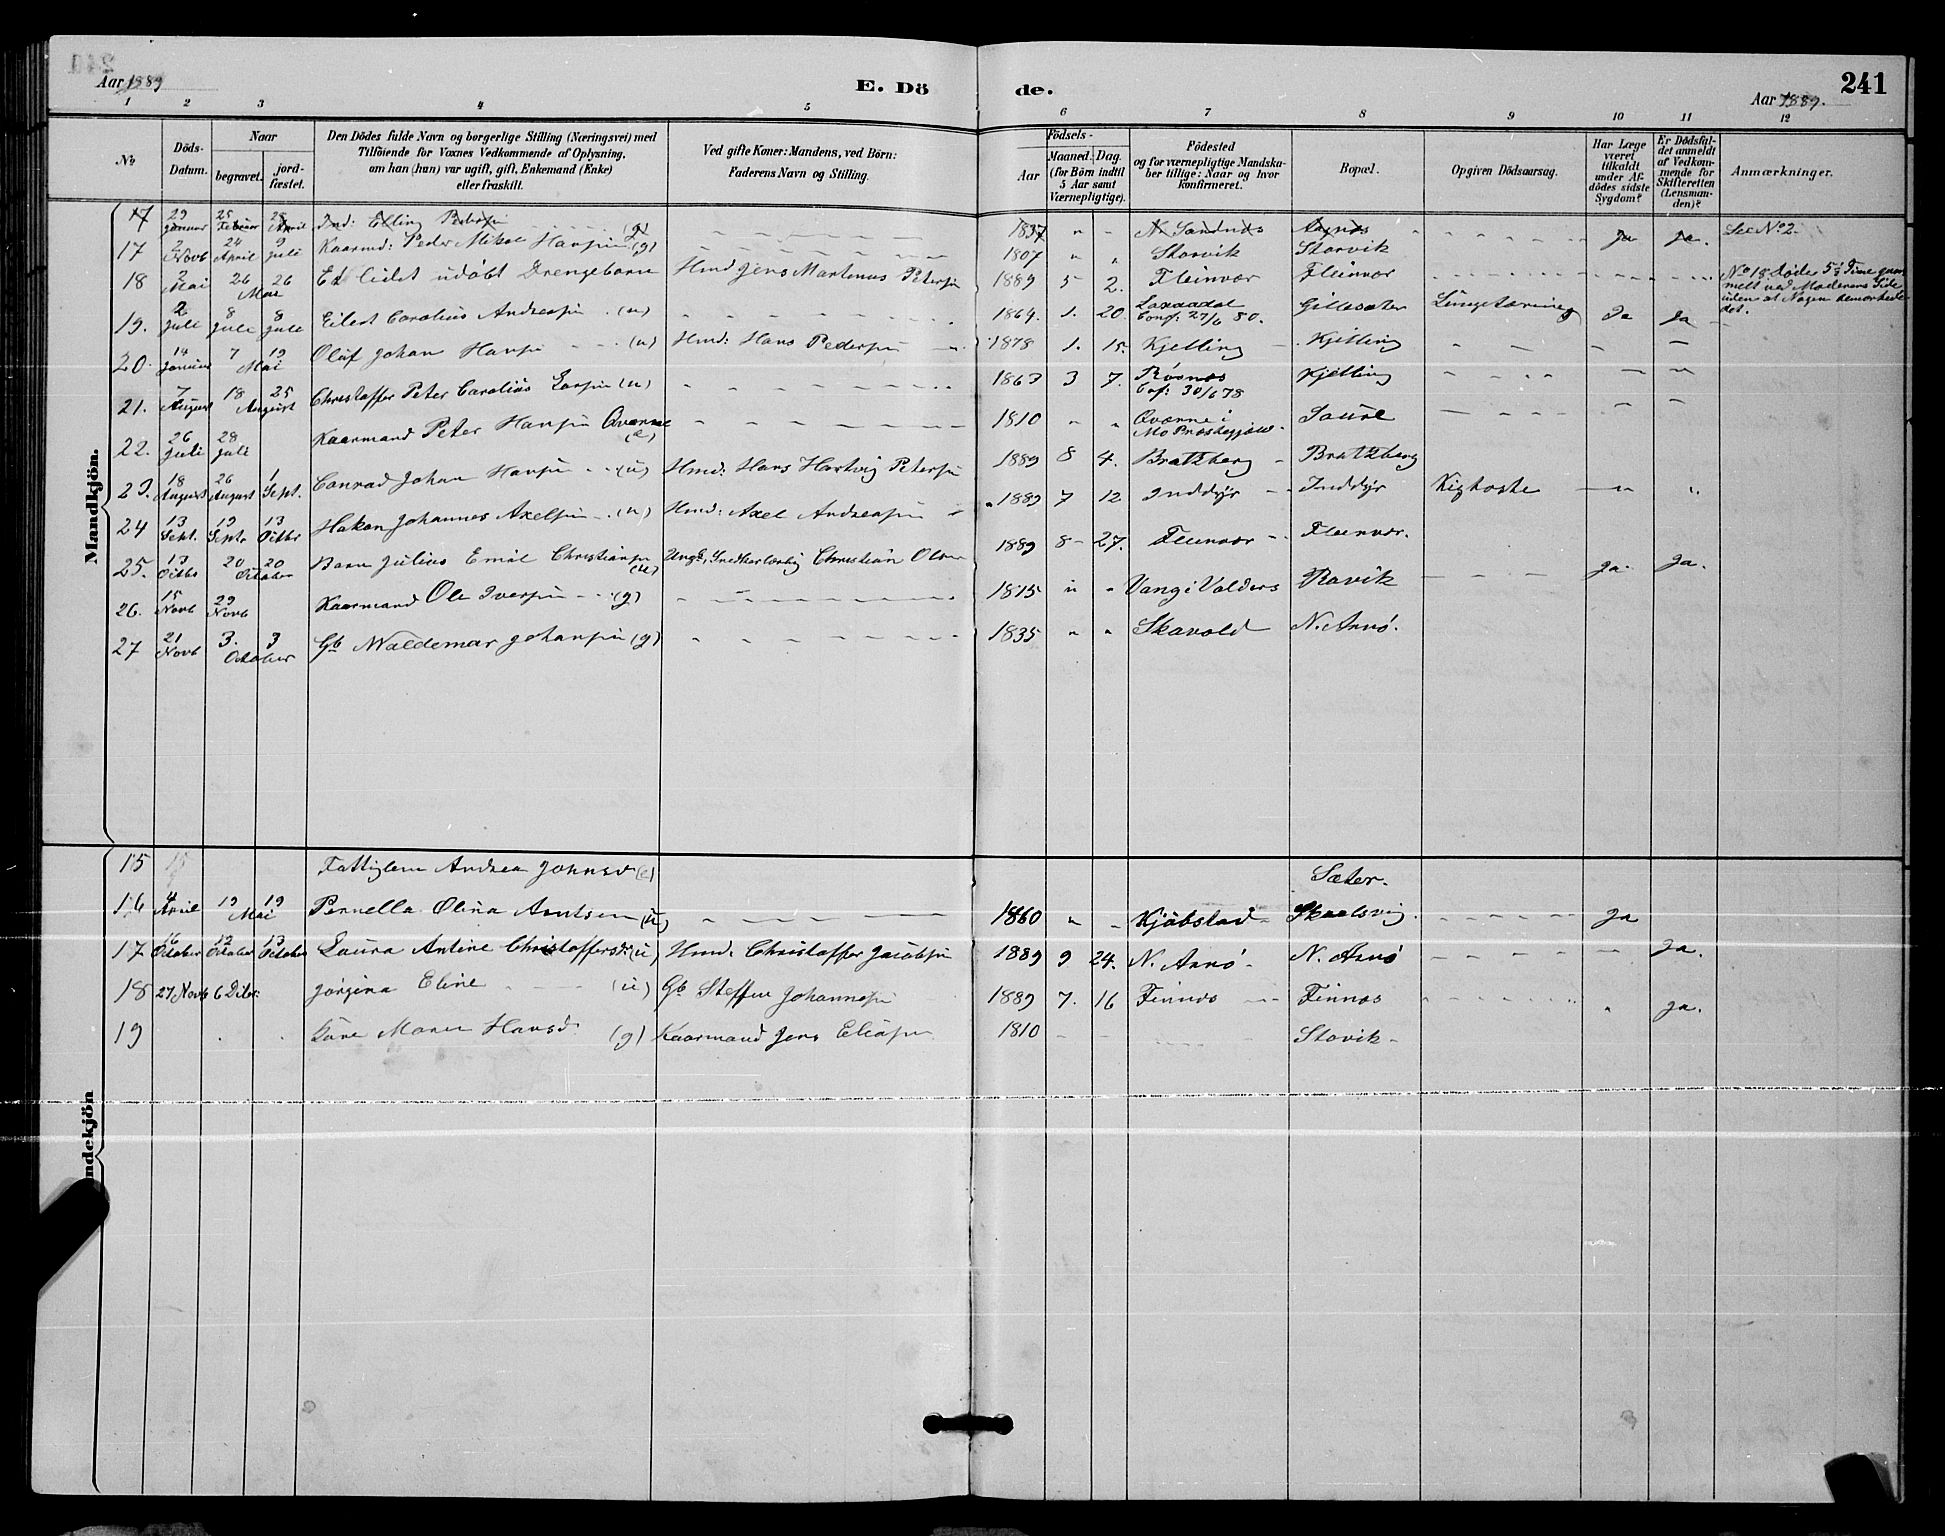 Aar 1889
E. Dö
de.
Aar 1889.
241
1 2 3 4 5 6 7 8 9 10 11 12
No
Döds-Datum.
Naar
begravet.
jord-fæstet.
Den Dödes fulde Navn og borgerlige Stilling (Næringsvei) med
Tilföiende for Voxnes Vedkommende af Oplysning,
om han (hun) var ugift, gift, Enkemand (Enke)
eller fraskilt.
Ved gifte Koner: Mandens, ved Börn:
Faderens Navn og Stilling.
Födsels-
Aar
Maaned. Dag.
(for Börn indtil
5 Aar samt
Værnepligtige).
Födested
og for værnepligtige Mandska-
ber tillige: Naar og hvor
konfirmeret.
Bopæl.
Opgiven Dödsaarsag.
Har Læge
været
tilkaldt
under Af-
dödes sidste
Sygdom?
Er Dödsfal-
det anmeldt
af Vedkom-
mende for
Skifteretten
(Lensman-
den)?
Anmærkninger.
Mandkjön.
17 29 Januar 25 Februar 28 April Ind: Elling Pedersen (g) 1837 " " N. Sandnes ja ja. See No 2.
17 2 Novb 24 April 9 Juli Kaarmd: Peder Mikal Hansen (g) 1807 " " Storvik Storvik
18 2 Mai 26 26 Mai Et lidet udøbt Drengebarn Hmd Jens Martinus Petersen 1889 5 2. Fleinvær Fleinvær No 18 døde 5½ Time gam
melt ved Moderens Side
uden at Nogen bemærkede
det.
19. 2 Juli 8 Juli 8 Juli Eilert Carolius Andreasen (u) 1864. 1. 20. Laxaadal
Conf: 27/6 80. Gillesæter Lungetæring Ja Ja
20. 14 Januar 7 19 Mai Oluf Johan Hansen (u) Hmd: Hans Pedersen 1878 1. 15. Kjelling Kjelling
21. 7 August 18 25 August Christoffer Peter Carolius Larsen (u) 1863 3 7. Røsnæs
Cof: 30/6 78 Kjelling
22. 26 Juli 28 Juli Kaarmand Peter Hansen Qværne (e) 1810 " " Qværne i
Mo Præstegjæld Saure
23. 18 August 26 August 1 Sept. Conrad Johan Hansen (u) Hmd: Hans Hartvig Petersen 1889 8 4. Bratzberg Bratzberg
24 13 Sept. 19 Septr 13 Octbr Hakon Johannes Axelsen (u) Hmd: Axel Andreasen 1889 7 12 Inddyr Inddyr Kighoste
25. 13 Octbr 20 20 October Barn Julius Emil Christiansen (u) Ungk, Snedkerlærling Christian Olsen 1889 8 27. Fleinvær Fleinvær.
26. 15 Novb 29 Novb Kaarmand Ole Iversen (g) 1815 " " Vang i Valders Ravik ja. ja.
27 21 Novb 3. 3 October Gb Waldemar Johansen (g) 1835 " " Skavold N. Arnø.
ndekjön
15 Fattiglem Andrea Johnsd (e) Sæter.
16 4 April 19 19 Mai Pernella Olina Arntsen (u) 1860 " " Kjøbstad Skaalsvig. ja
17 16 October 12 October 13 October Laura Antine Christoffersd: (u) Hmd: Christoffer Jacobsen 1889 9 24. N. Arnø N. Arnø ja.
18 27 Novb 6 Dcbr. Jørgina Eline (u) Gb Steffen Johannesen 1889 7. 16 Finnes Finnes ja.
19 Maren Hansd (g) Kaarmand Jens Eliasen 1810 Storvik